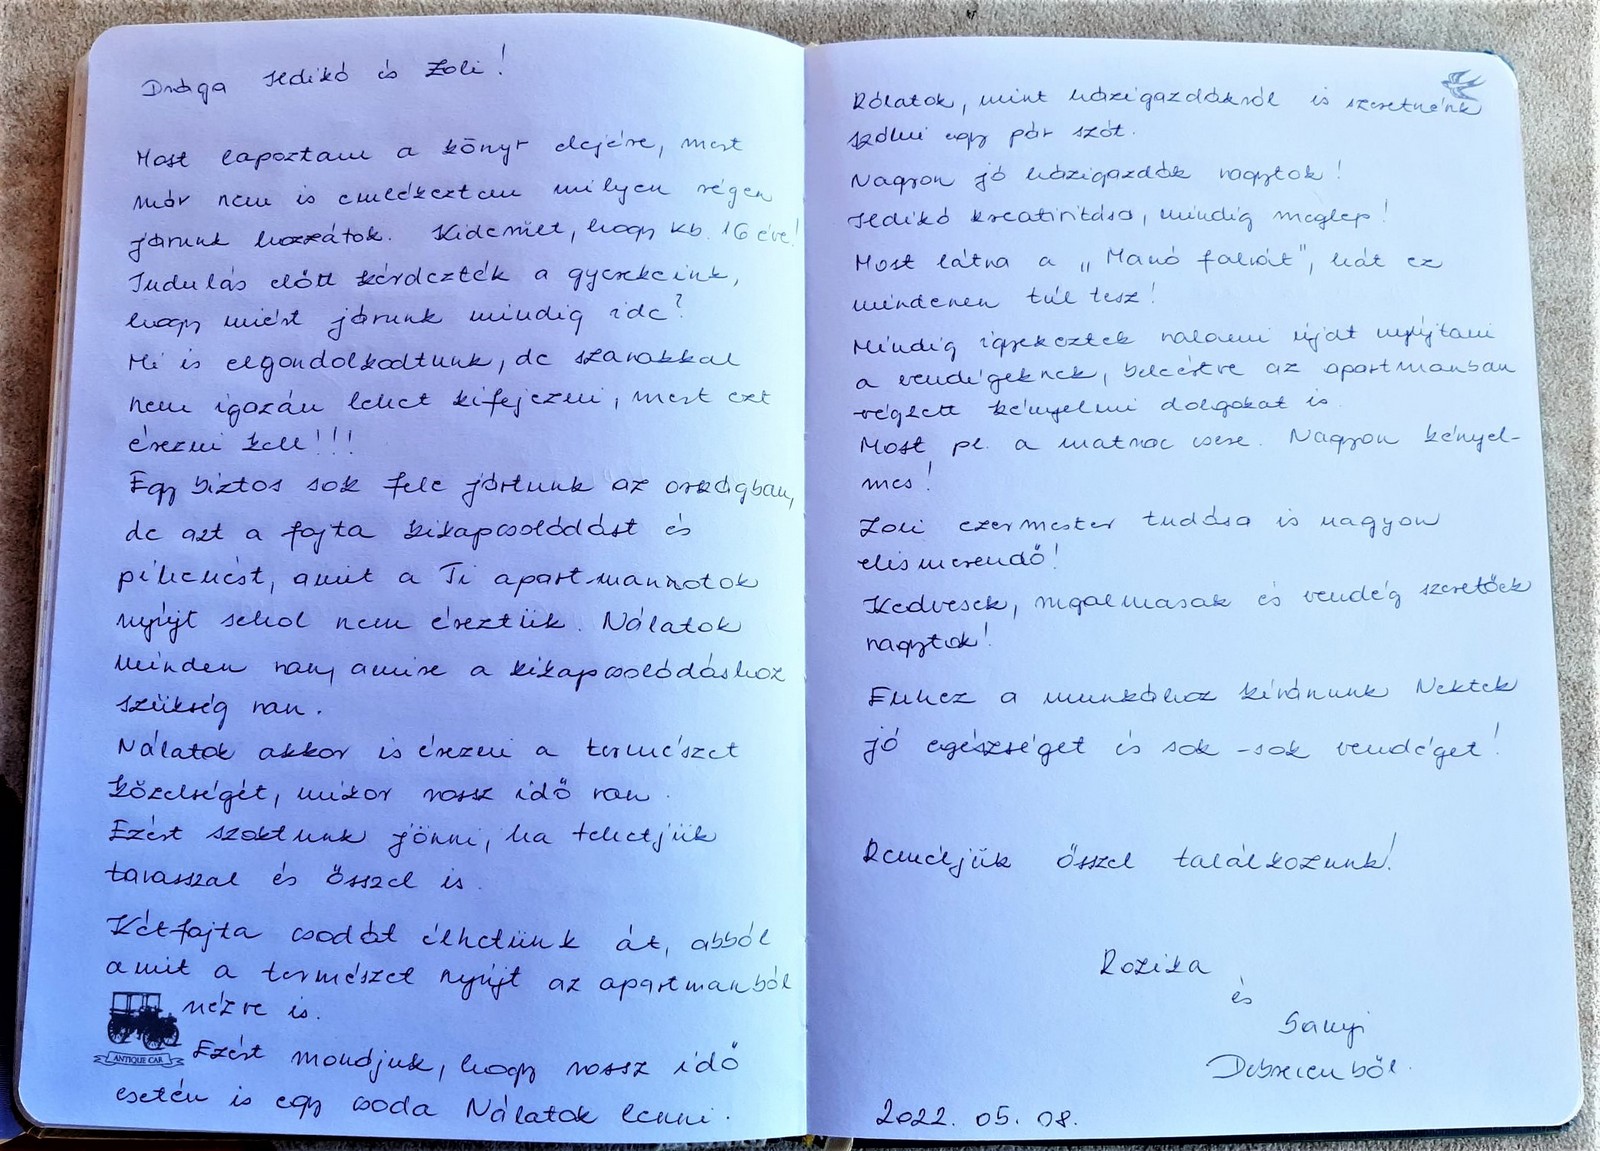 Drága Ildikó és Zoli!
Most lapoztam a könyv elejére, mert
már nem is emlékeztem milyen régen
járunk hozzátok. Kiderült, hogy kb. 16 éve!
Indulás előtt kérdezték a gyerekeink,
hogy miért járunk mindig ide?
Mi is elgondolkodtunk, de szavakkal
nem igazán lehet kifejezni, mert ezt
érezni kell!!!
Egy biztos sok fele jártunk az országban,
de azt a fajta kikapcsolódást és
pihenést, amit a Ti apartmannotok
nyújt sehol nem éreztük. Nálatok
minden van, amire a kikapcsolódáshoz
szükség van.
Nálatok akkor is érezni a természet
közelségét, mikor rossz idő van.
Ezért szoktunk jönni, ha tehetjük
tavasszal és ősszel is.
Kétfajta csodát élhetünk át, abból
amit a természet nyújt az apartmanból
nézve is.
Ezért mondjuk, hogy rossz idő
esetén is egy csoda Nálatok lenni.
ANTIQUE CAR
Rólatok, mint házigazdákról is szeretnénk
szólni egy pár szót.
Nagyon jó házigazdák vagytok!
Ildikó kreativitása, mindig meglep!
Most látva a „Manó falvát", hát ez
mindenen túl tesz!
Mindig igyekeztek valami újat nyújtani
a vendégeknek, beleértve az apartmanban
végzett kényelmi dolgokat is.
Most pl. a matrac csere. Nagyon kényel-
mes!
Zoli ezermester tudása is nagyon
elismerendő!
Kedvesek, rugalmasak és vendég szeretőek
vagytok!
Ehhez a munkához kívánunk Nektek
jó egészséget és sok-sok vendéget!
Reméljük ősszel találkozunk!
Rozika
és
Sanyi
Debrecenből.
2022. 05. 08.